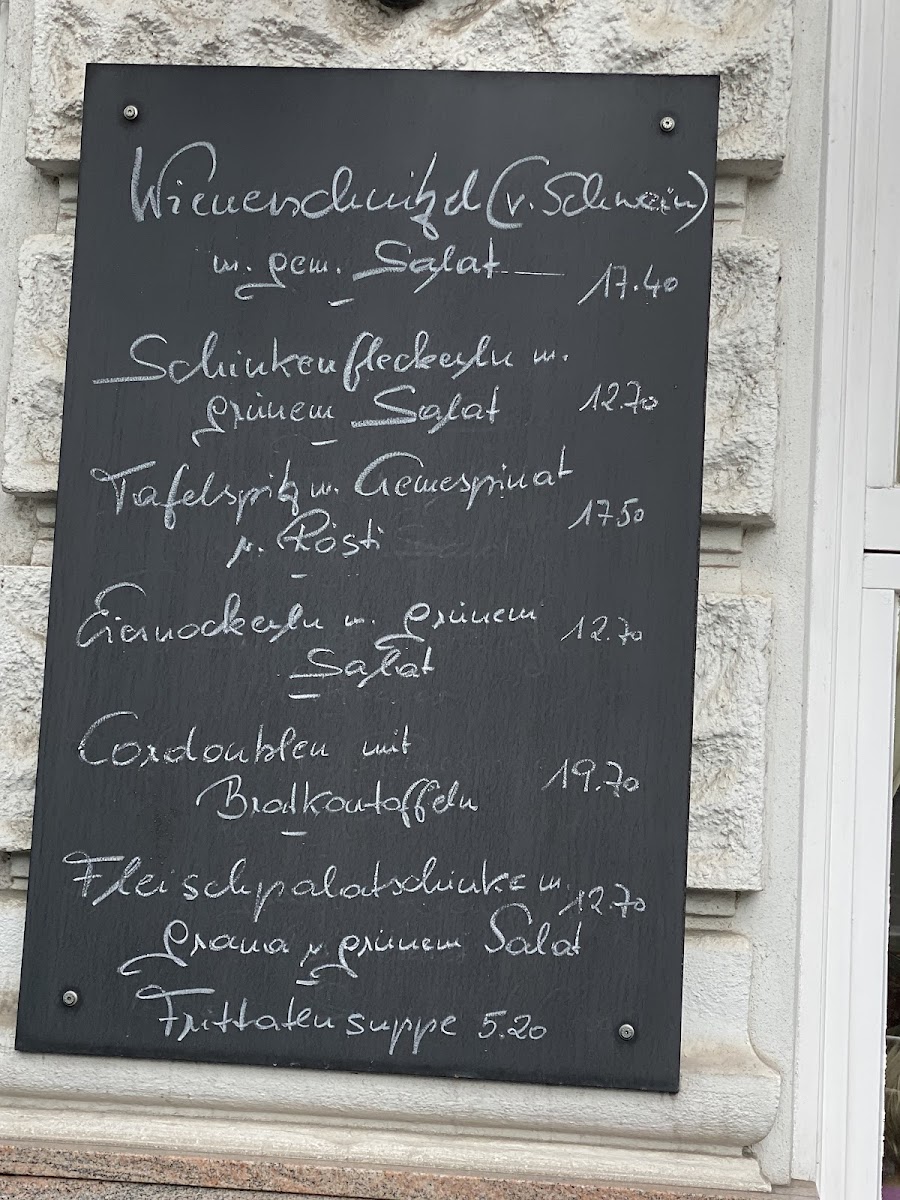 Wienerschnitzel (v. Schwein)
m. gem. Salat 17.40
Schinkenfleckerln m.
grünem Salat 12.70
Tafelspitz m. Cremespinat
u. Rösti 17.50
Eiernockerln m. grünem 12.70
Salat
Cordonbleu mit
Bratkartoffeln 19.70
Fleischpalatschinke m. 12.70
Grana u. grünem Salat
Frittatensuppe 5.20